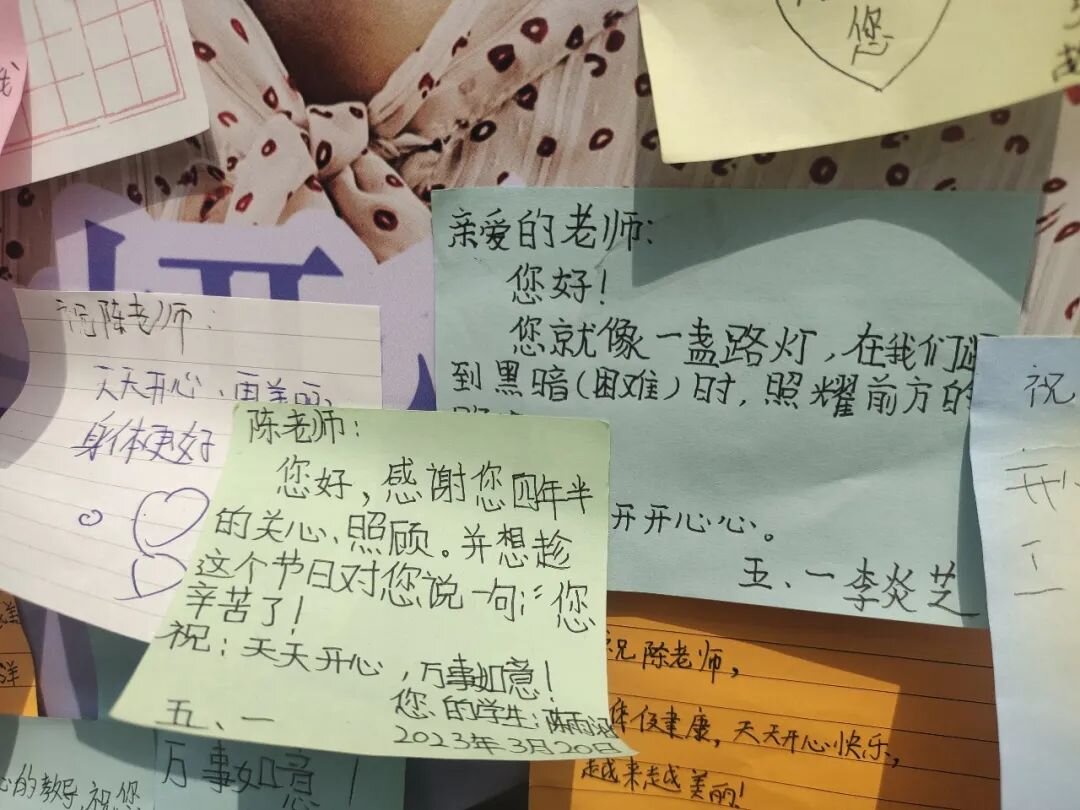 您
亲爱的老师：
您好！
您就像一盏路灯，在我们
到黑暗(困难)时，照耀前方的
开开心心。
五、一 李炎芝
祝陈老师：
天天开心、更美丽、
身体更好
陈老师：
您好，感谢您四年半
的关心、照顾。并想趁
这个节日对您说一句：“您
辛苦了！
祝：天天开心，万事如意！
五、一 您的学生：陈雨
2023年3月20日
祝
祝陈老师，
健康，天天开心快乐，
越来越美丽！
心的教导，祝您
万事如意！
您